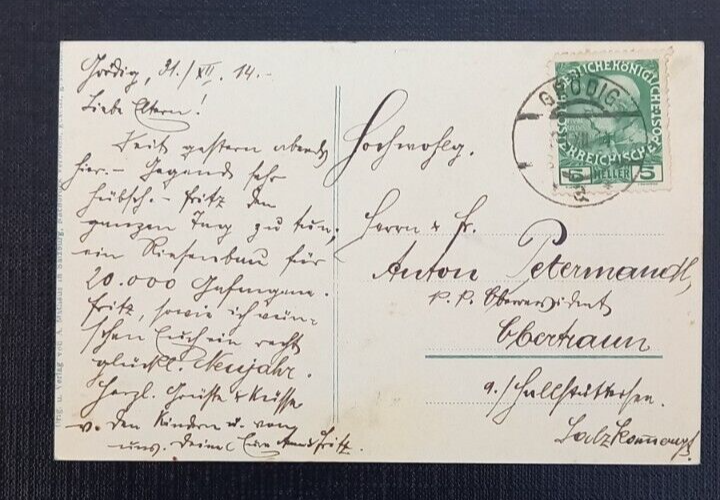 Grödig, 31./XII. 14.-
Liebe Eltern!
Seit gestern abends
hier. - Gegend sehr
hübsch. - Fritz den
ganzen Tag zu tun,
ein Riesenbau für
20.000 Gefangene.
Fritz, sowie ich wün-
schen Euch ein recht
glückl. Neujahr.
Herzl. Grüße & Küsse
v. den Kindern u. von
uns. Fritz.
Hochwohlg.
Herrn & Fr.
Anton Petermandl,
k. k. Oberrevident
Obertraun
a./Hallstättersee.
Salzkammergut.
GRÖDIG
KAISERLICHEKÖNIGLICHE
ÖSTERREICHISCHE
5 HELLER 5
Orig. u. Verlag von Salzburg